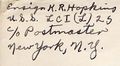 Ensign H.R. Hopkins
U.S.S. LCI(L) 25
c/o Postmaster
New York, N.Y.